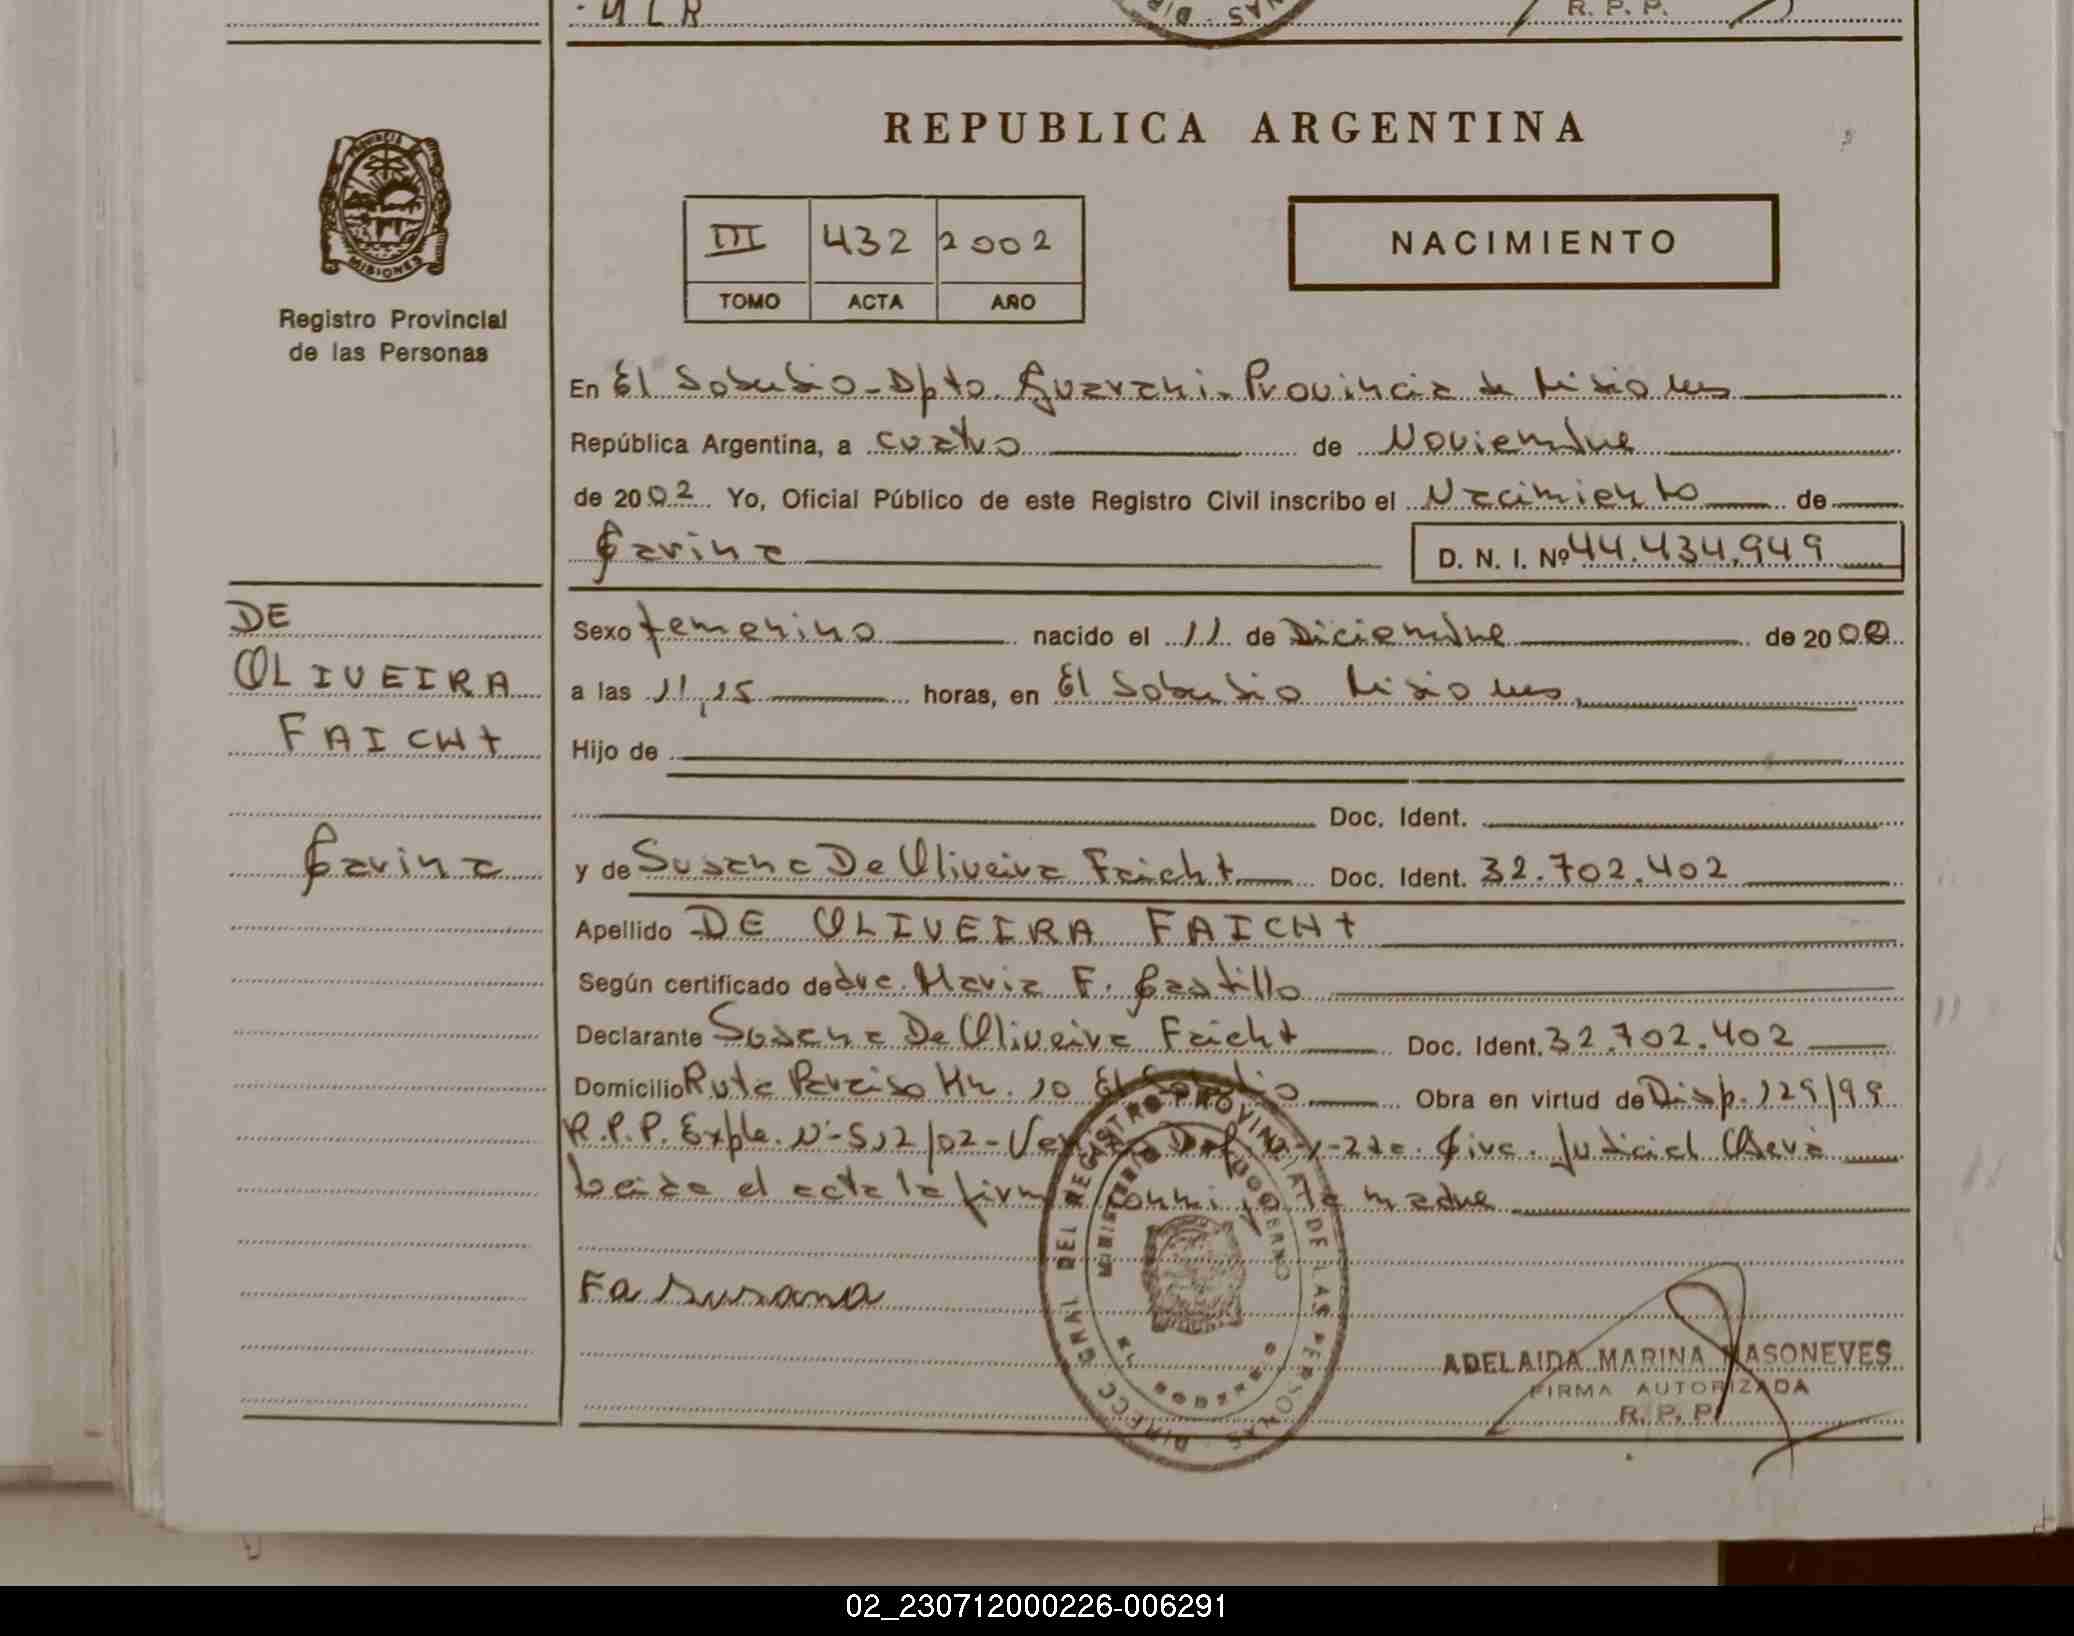 R. P. P.
REPUBLICA ARGENTINA
PROVINCIA
MISIONES
Registro Provincial
de las Personas
III 432 2002
TOMO ACTA AÑO
NACIMIENTO
En El Soberbio - Dpto. Guarani - Provincia de Misiones
República Argentina, a cuatro de Noviembre
de 2002 Yo, Oficial Público de este Registro Civil inscribo el Nacimiento de
Carina D. N. I. Nº 44.434.949
DE
OLIVEIRA
FAICHt
Carina
Sexo femenino nacido el 11 de Diciembre de 2000
a las 11,15 horas, en El Soberbio Misiones
Hijo de
Doc. Ident.
y de Susana De Oliveira Faicht Doc. Ident. 32.702.402
Apellido DE OLIVEIRA FAICHt
Según certificado de María F. Castillo
Declarante Susana De Oliveira Faicht Doc. Ident. 32.702.402
Domicilio Ruta Paraiso Km. 10 El Soberbio Obra en virtud de Disp. 129/99
R.P.P. Expte. Nº 512/02 - Judicial Oberá
Leida el acta la firm conmigo la madre
Fa Susana
DIRECC. GRAL. DEL REGISTRO PROVINCIAL DE LAS PERSONAS
ADELAIDA MARINA MASONEVES
FIRMA AUTORIZADA
R. P. P.
02_230712000226-006291